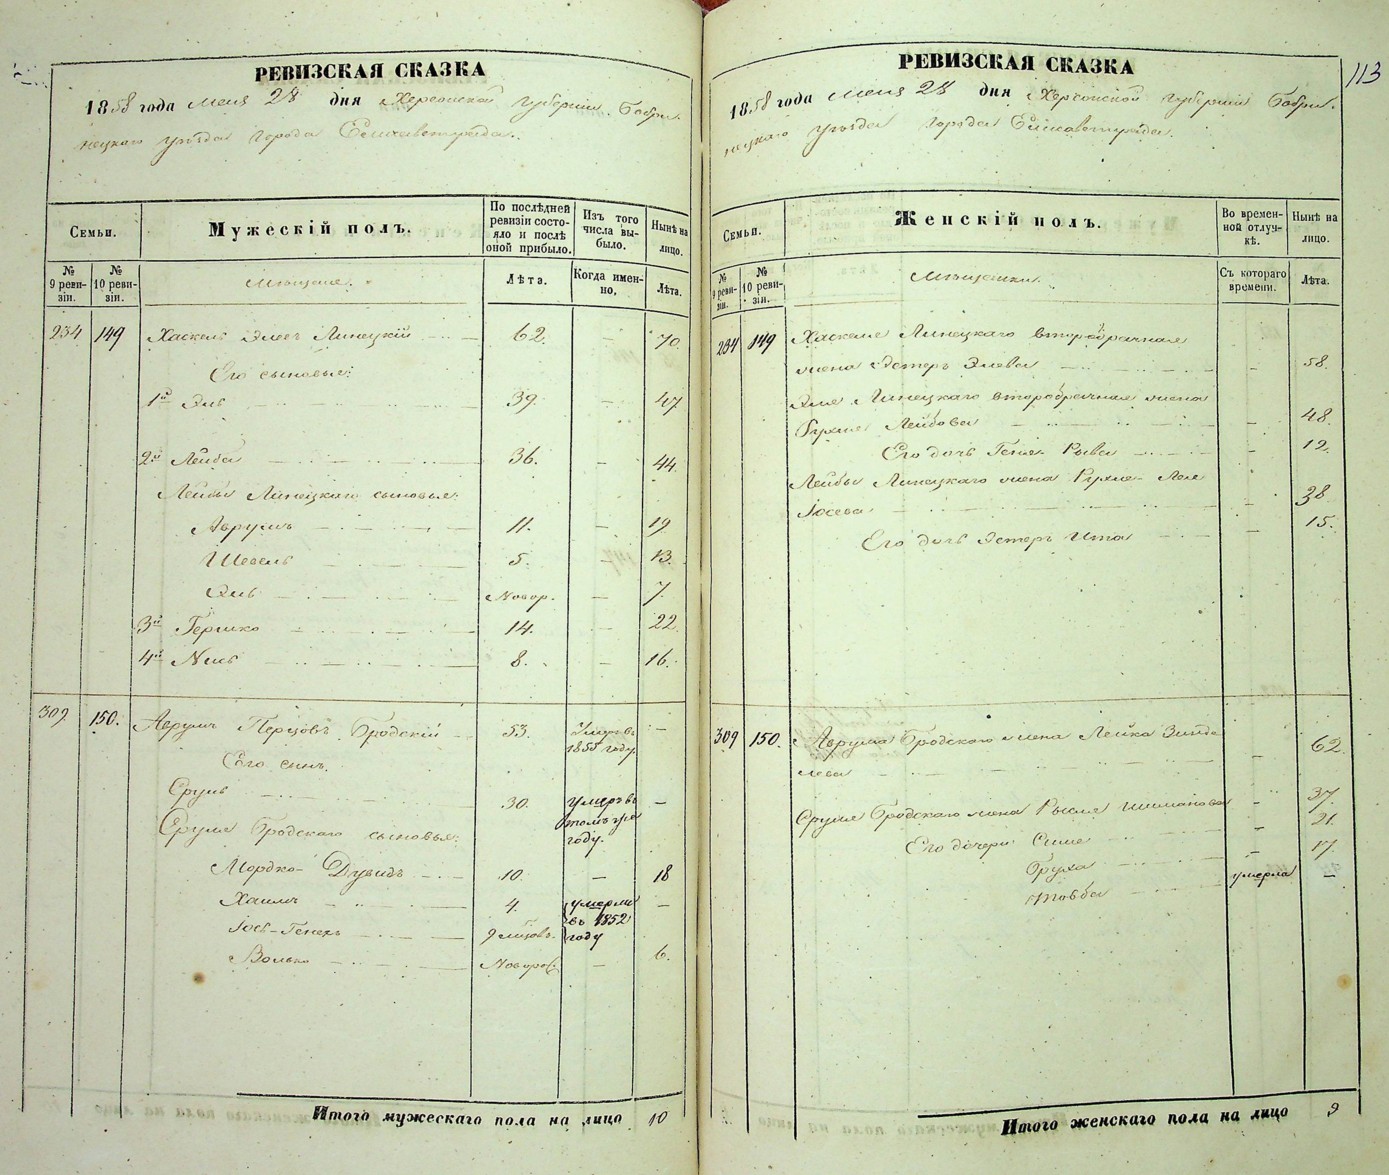 РЕВИЗСКАЯ СКАЗКА
1858 года мая 28 дня Херсонской губернии Бобри-
нецкаго уѣзда города Елисаветграда.
Семьи.
Мужескій полъ.
По послѣдней ревизіи состо-
яло и послѣ оной прибыло.
Изъ того числа вы-
было.
Нынѣ на лицо.
№ 9 реви-
зіи.
№ 10 реви-
зіи.
Мѣщане.
Лѣта.
Когда имен-
но,
Лѣта.
234 149 Хаскель Элевъ Линецкій 62. — 70
Его сыновья:
1й Эль 39. — 47
2й Лейба 36. — 44
Лейбы Линецкаго сыновья:
Аврумъ 11. — 19
Шевель 5. — 13.
Эль Новор. — 7.
3й Гершко 14. — 22
4й 8. — 16.
309 150. Аврумъ Перцовъ Бродскій 53. Умеръ въ 1855 году —
Его сынъ.
Сруль 30. умеръ въ томъ же году. —
Сруля Бродскаго сыновья:
Мордко-Дувидъ 10. — 18
Хаимъ 4. умерли въ 1852 году —
Іось-Генехъ 9 мѣсяцовъ.
Волько Новорож. — 6.
Итого мужескаго пола на лицо 10
113
РЕВИЗСКАЯ СКАЗКА
1858 года мая 28 дня Херсонской губерніи Бобри-
нецкаго уѣзда города Елисаветграда.
Семьи.
Женскій полъ.
Во времен-
ной отлуч-
кѣ.
Нынѣ на лицо.
№ 9 реви-
зіи.
№ 10 реви-
зіи.
Мѣщанки.
Съ котораго времени.
Лѣта.
234 149 Хаскеля Линецкаго второбрачная
жена Эстеръ Элева — 58.
Эля Линецкаго второбрачная жена
Рухля Лейбова — 48
Его дочь Геня-Рыва — 12.
Лейбы Линецкаго жена Рухля-Лея
Іосева — 38
Его дочь Эстеръ Ита — 15.
309 150. Аврума Бродскаго жена Лейка Зинде
лева — 62.
Сруля Бродскаго жена Рысля Шимонова — 37.
Его дочери Симе — 21.
Бруха — 17.
Товба умерла —
Итого женскаго пола на лицо 9